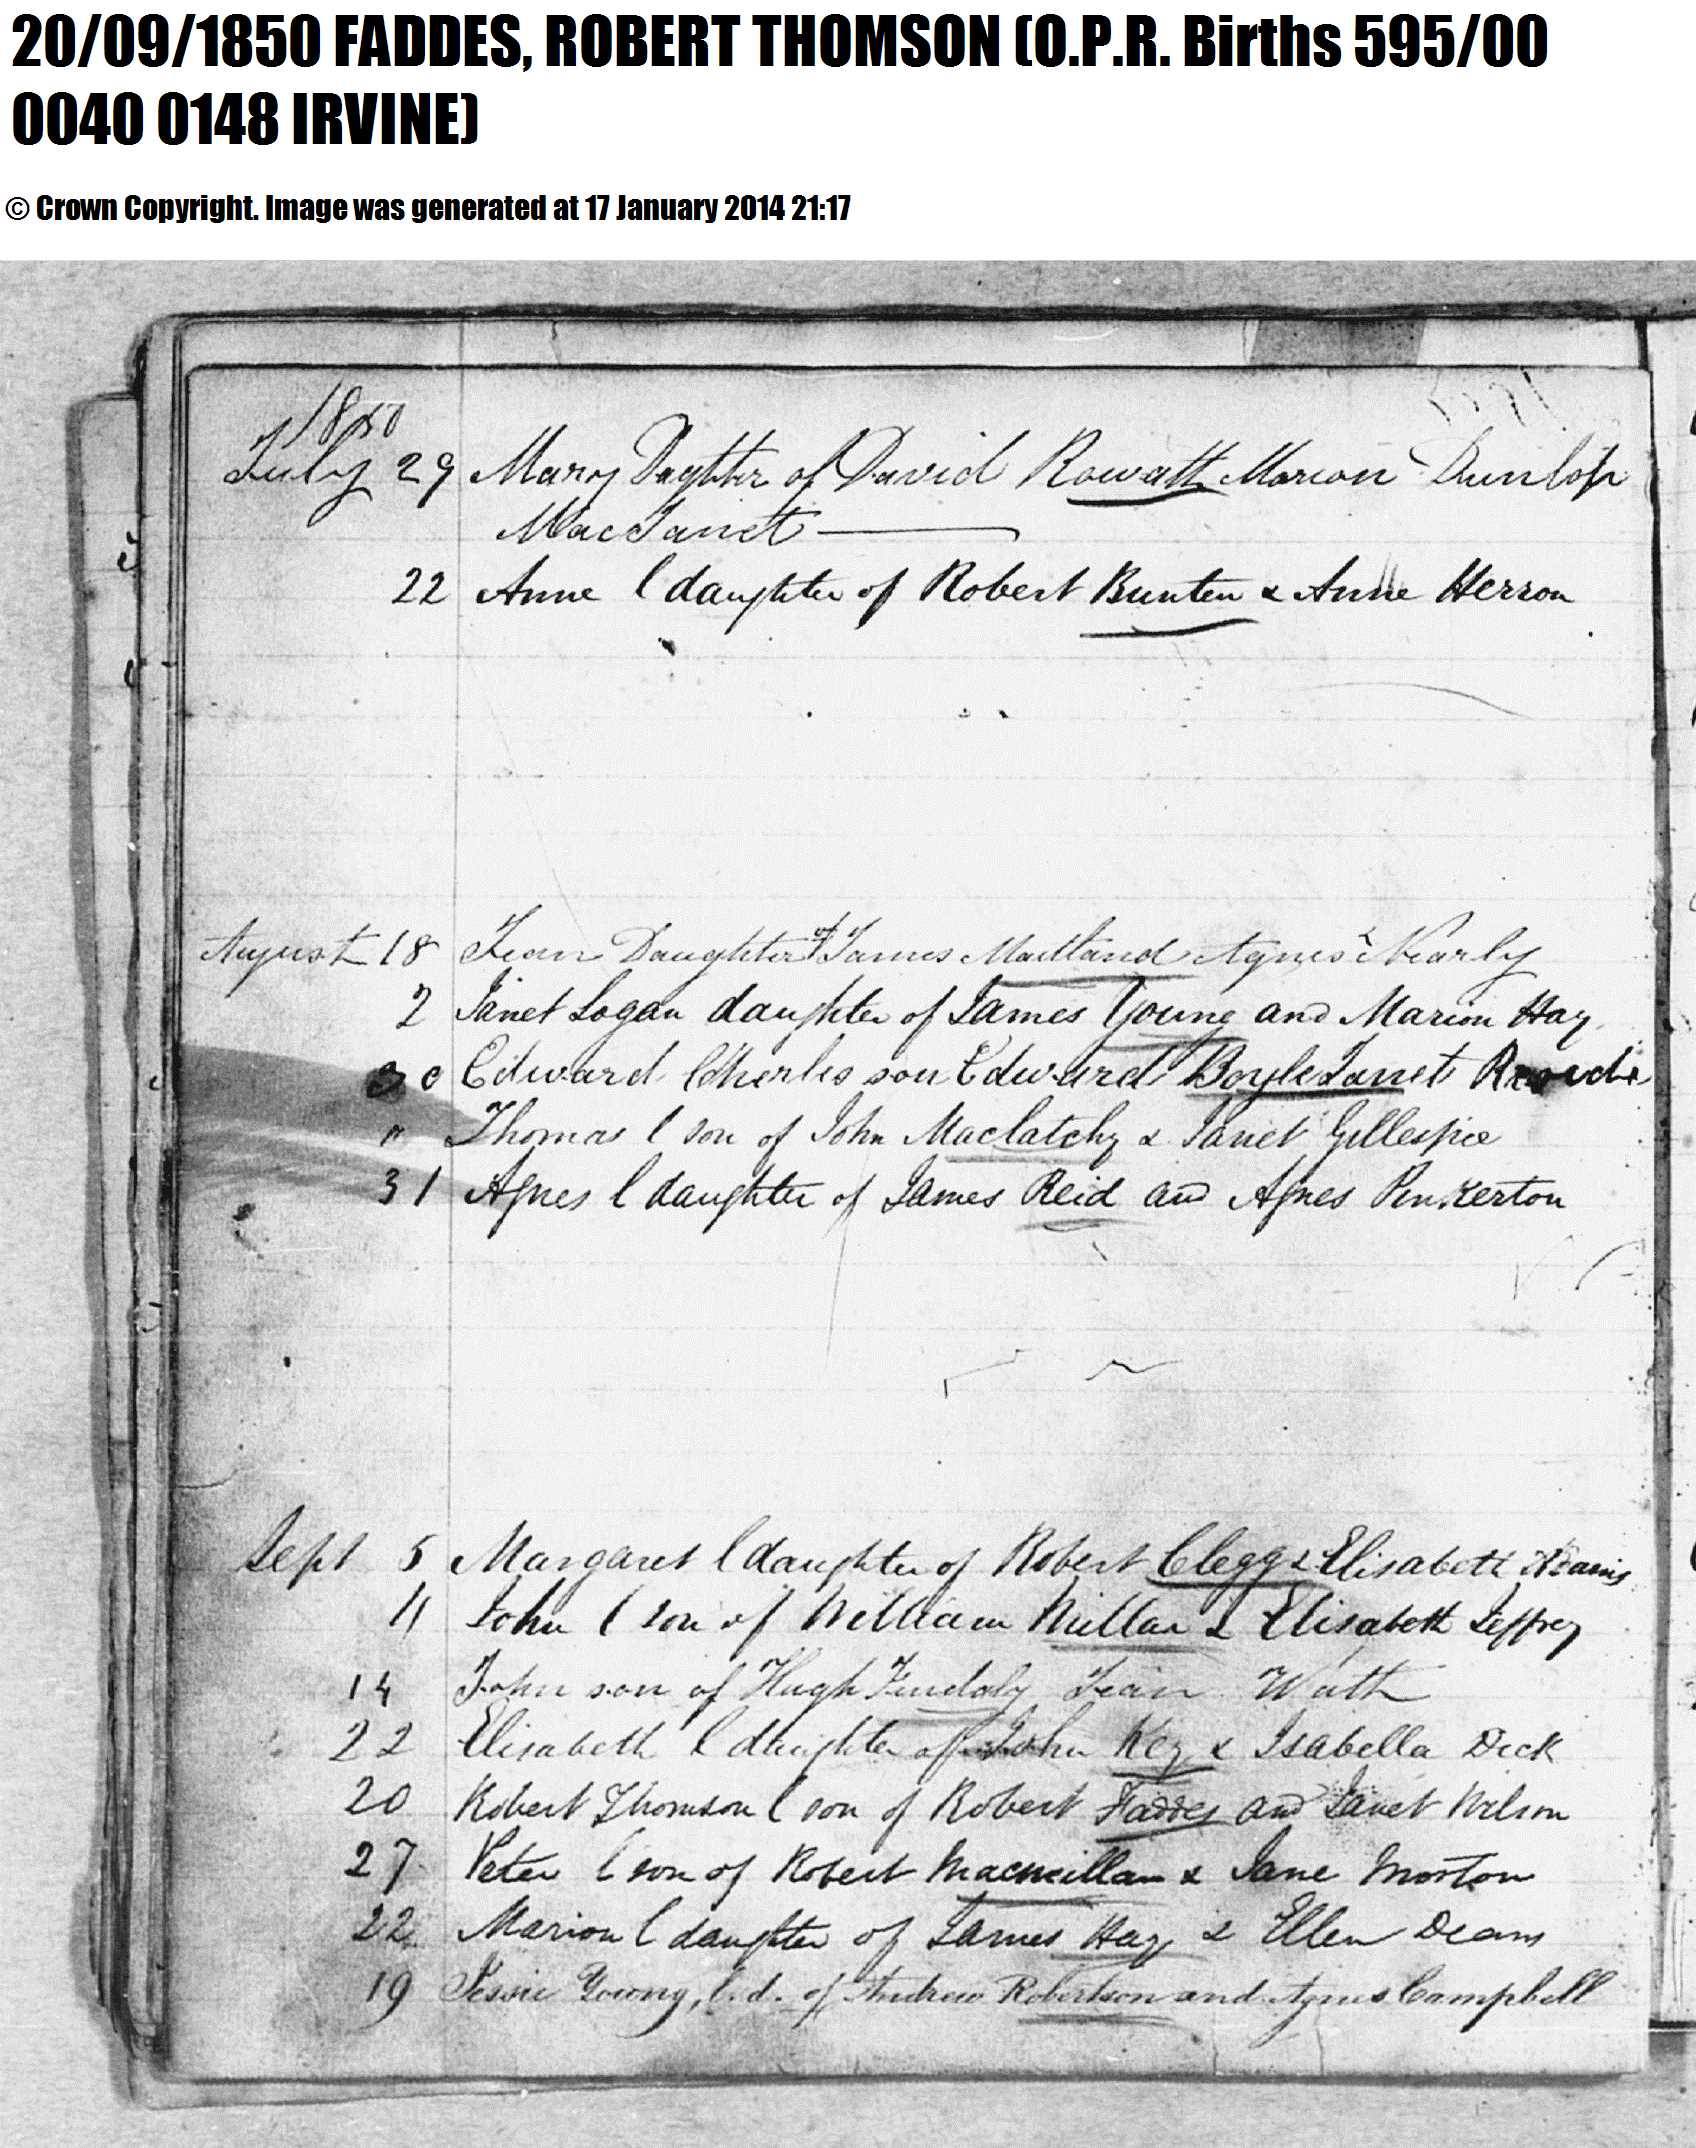 20/09/1850 FADDES, ROBERT THOMSON (O.P.R. Births 595/00
0040 0148 IRVINE)
© Crown Copyright. Image was generated at 17 January 2014 21:17
1850
July 29 Mary Daghter of David Rowatt Marion Dunlop
MacJanet
22 Anne l daughter of Robert Bunten & Anne Herron
August 18 Jean Daughter of James Maitland Agnes Nearly
2 Janet Logan daughter of James Young and Marion Hay
30 Edward Cherles son Edward Boyle Janet
" Thomas l son of John Maclatchy & Janet Gillespie
31 Agnes l daughter of James Reid and Agnes Pinkerton
Sept 5 Margaret l daughter of Robert Clegg & Elisabeth
11 John l son of William Millar & Elisabeth Jeffrey
14 John son of Hugh Jean
22 Elisabeth l daughter of John Key & Isabella Dick
20 Robert Thomson l son of Robert Faddes and Janet Wilson
27 Peter l son of Robert Macmillan & Jane Morton
22 Marion l daughter of James Hay & Ellen Deans
19 Jessie Young, l. d. of Andrew Robertson and Agnes Campbell